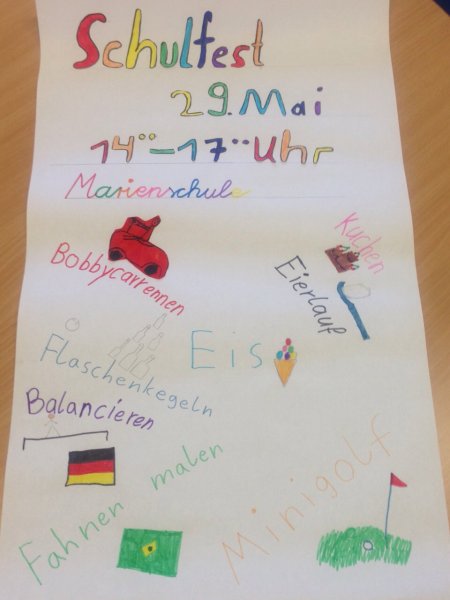 Schulfest
29. Mai
14°°-17°° Uhr
Marienschule
Kuchen
Bobbycarrennen
Eierlauf
Eis
Flaschenkegeln
Balancieren
Fahnen malen
Minigolf